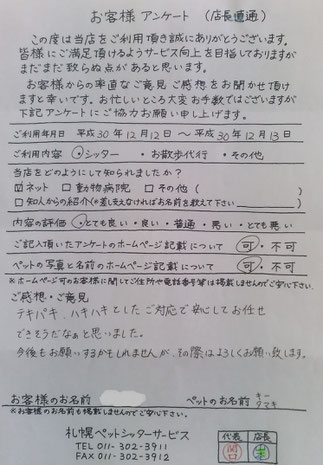 お客様アンケート （店長直通）
この度は当店をご利用頂き誠にありがとうございます。
皆様にご満足頂けるようサービス向上を目指しておりますが
まだまだ致らぬ点があると思います。
お客様からの率直なご意見 ご感想をお聞かせ頂け
ますと幸いです。お忙しいところ大変お手数ではございますが
下記アンケートにご協力お願い申し上げます。
ご利用年月日 平成30年12月12日 〜 平成30年12月13日
ご利用内容 ・シッター ・お散歩代行 ・その他
当店をどのようにして知られましたか？
☑ネット □動物病院 □その他（ ）
□知人からの紹介（※差し支えなければお名前を教えて下さい ）
内容の評価 ・とても良い・良い・普通・悪い・とても悪い
ご記入頂いたアンケートのホームページ記載について 可・不可
ペットの写真と名前のホームページ記載について 可・不可
※ホームページ可のお客様に関してご住所や電話番号等は掲載しませんのでご安心下さい。
ご感想・ご意見
テキパキ、ハキハキとしたご対応で安心してお任せ
できそうだなぁと思いました。
今後もお願いするかもしれませんが、その際はよろしくお願い致します。
お客様のお名前 ペットのお名前 キー タマキ
※お客様のお名前も掲載しませんのでご安心下さい。
札幌ペットシッターサービス
TEL 011-302-3911
FAX 011-302-3912
代表 店長